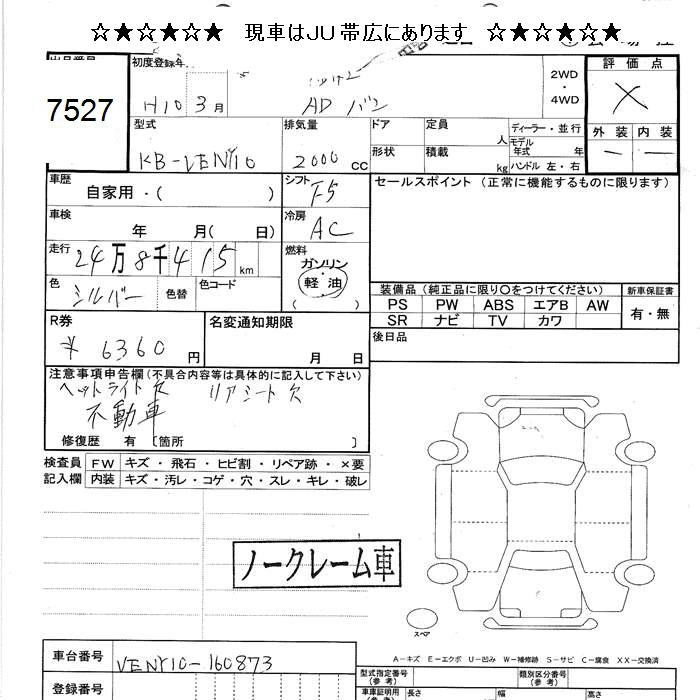 ☆★☆★☆★ 現車はJU帯広にあります ☆★☆★☆★
7527
初度登録年
H10 3月
AD バン
2WD
・
4WD
評価点
×
外装 内装
― ―
型式
KB-VENY10
排気量
2000 CC
ドア
定員
人
形状
積載
kg
ディーラー・並行
モデル年式 年
ハンドル 左・右
車歴
自家用・( )
シフト
F5
セールスポイント (正常に機能するものに限ります)
車検
年 月( 日)
冷房
AC
走行
24万8千415km
燃料
ガソリン
・
軽油
( )
色
シルバー
色替
色コード
装備品 (純正品に限り○をつけてください)
新車保証書
PS PW ABS エアB AW
SR ナビ TV カワ
有・無
R券
¥6360円
名変通知期限
月 日
後日品
注意事項申告欄(不具合内容等は具体的に記入して下さい)
ヘットライト欠 リアシート欠
不動車
修復歴 有 〔箇所 〕
検査員記入欄
FW キズ・飛石・ヒビ割・リペア跡・×要
内装 キズ・汚レ・コゲ・穴・スレ・キレ・破レ
ノークレーム車
スペア
A―キズ E―エクボ U―凹み W―補修跡 S―サビ C―腐食 XX―交換済
車台番号
VENY10-160873
登録番号
型式指定番号(参考)
類別区分番号(参考)
車庫証明用(参考)
長さ 幅 高さ